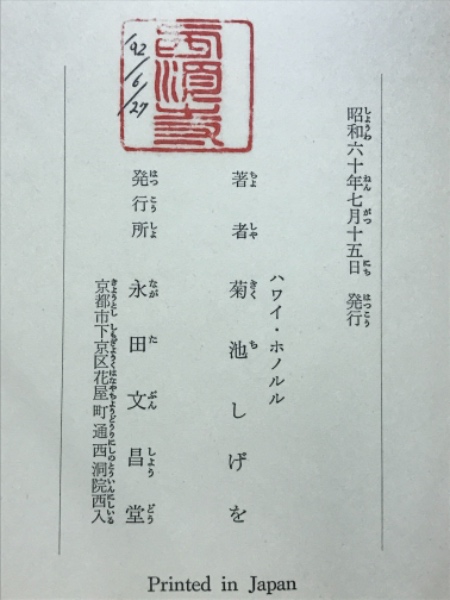 昭和六十年七月十五日 発行
ハワイ・ホノルル
著者 菊池しげを
発行所 永田文昌堂
京都市下京区花屋町通西洞院西入
'92/6/27
Printed in Japan